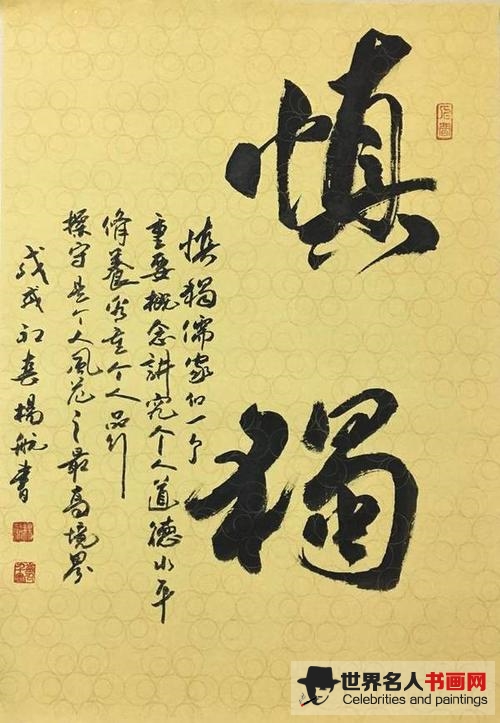 慎獨
慎獨儒家的一个
重要概念講究个人道德水平
脩養看重个人品行
操守是个人風范之最高境界
戊戌初春楊航書
世界名人书画网
Celebrities and paintings